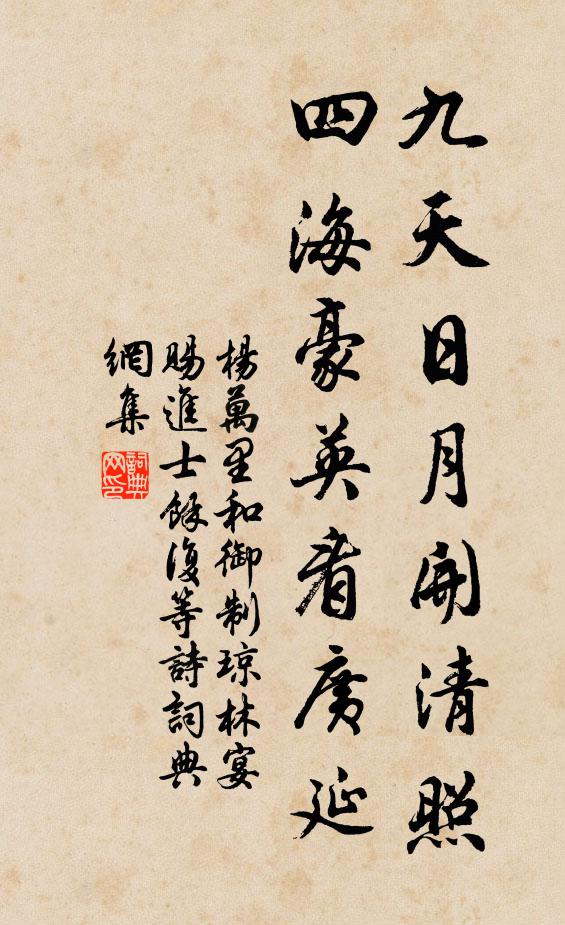 九天日月開清照
四海豪英看廣延
楊萬里和御制琼林宴
賜進士餘復等詩詞典
網集
詞典網印